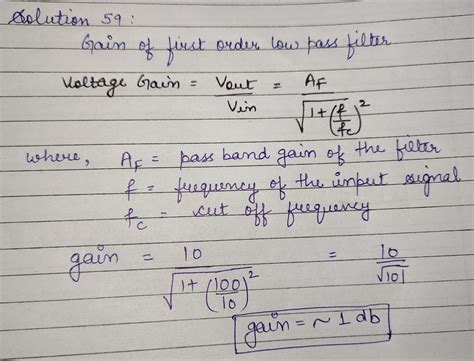 Solution 59:
Gain of first order low pass filter
Voltage Gain = Vout / Vin = AF / √(1+(f/fc)²)
where, AF = pass band gain of the filter
f = frequency of the input signal
fc = cut off frequency
gain = 10 / √(1+(100/10)²) = 10 / √101
gain = ~ 1 db